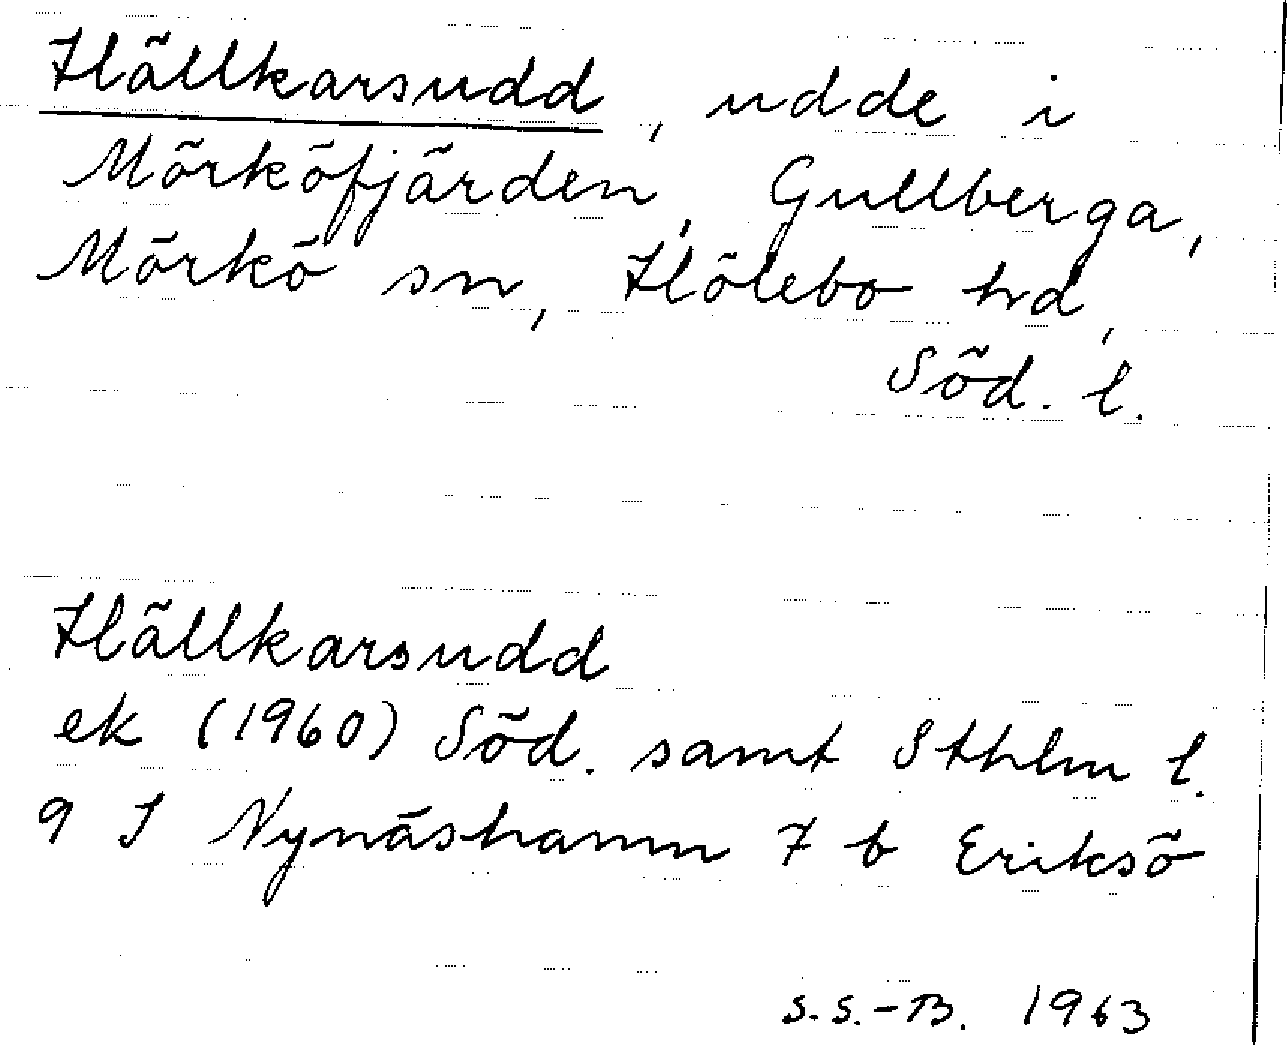 Hällkarsudd, udde i
Mörköfjärden, Gullberga,
Mörkö sn, Hölebo hd,
Söd. l.
Hällkarsudd
ek (1960) Söd. samt Sthlm l.
9 I Nynäshamn 7 b Eriksö
S.S.-B. 1963